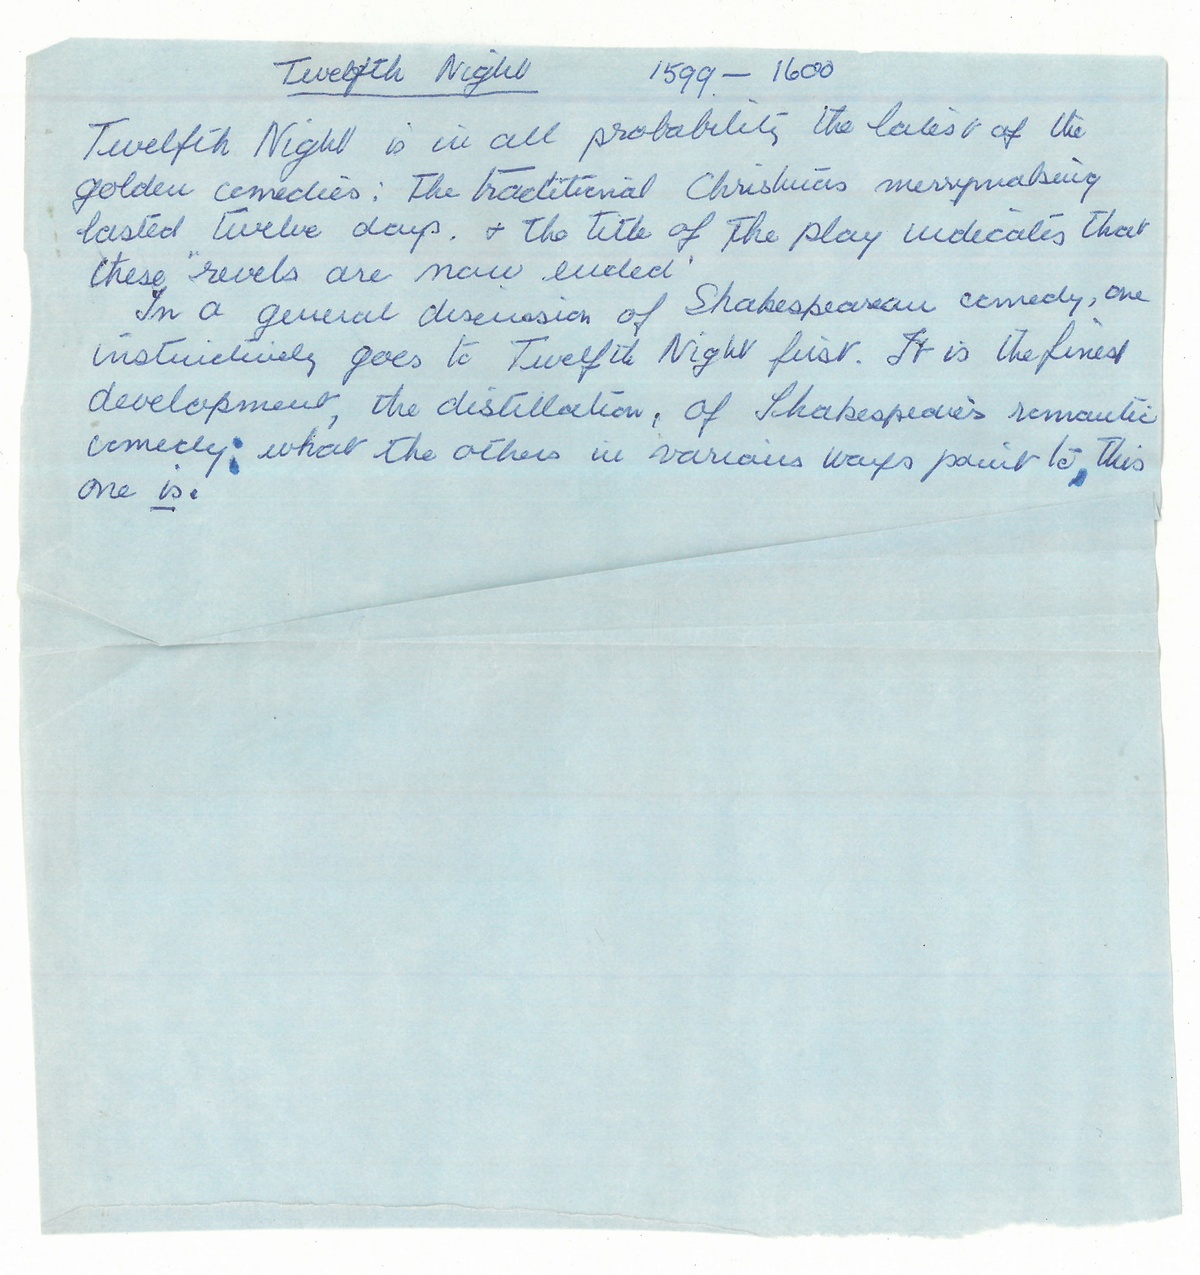 Twelfth Night 1599 - 1600
Twelfth Night is in all probability the latest of the
golden comedies: The traditional Christmas merrymaking
lasted twelve days, + the title of the play indicates that
these "revels are now ended"
In a general discussion of Shakespearean comedy, one
instinctively goes to Twelfth Night first. It is the finest
development, the distillation, of Shakespeare's romantic
comedy; what the others in various ways point to, this
one is.